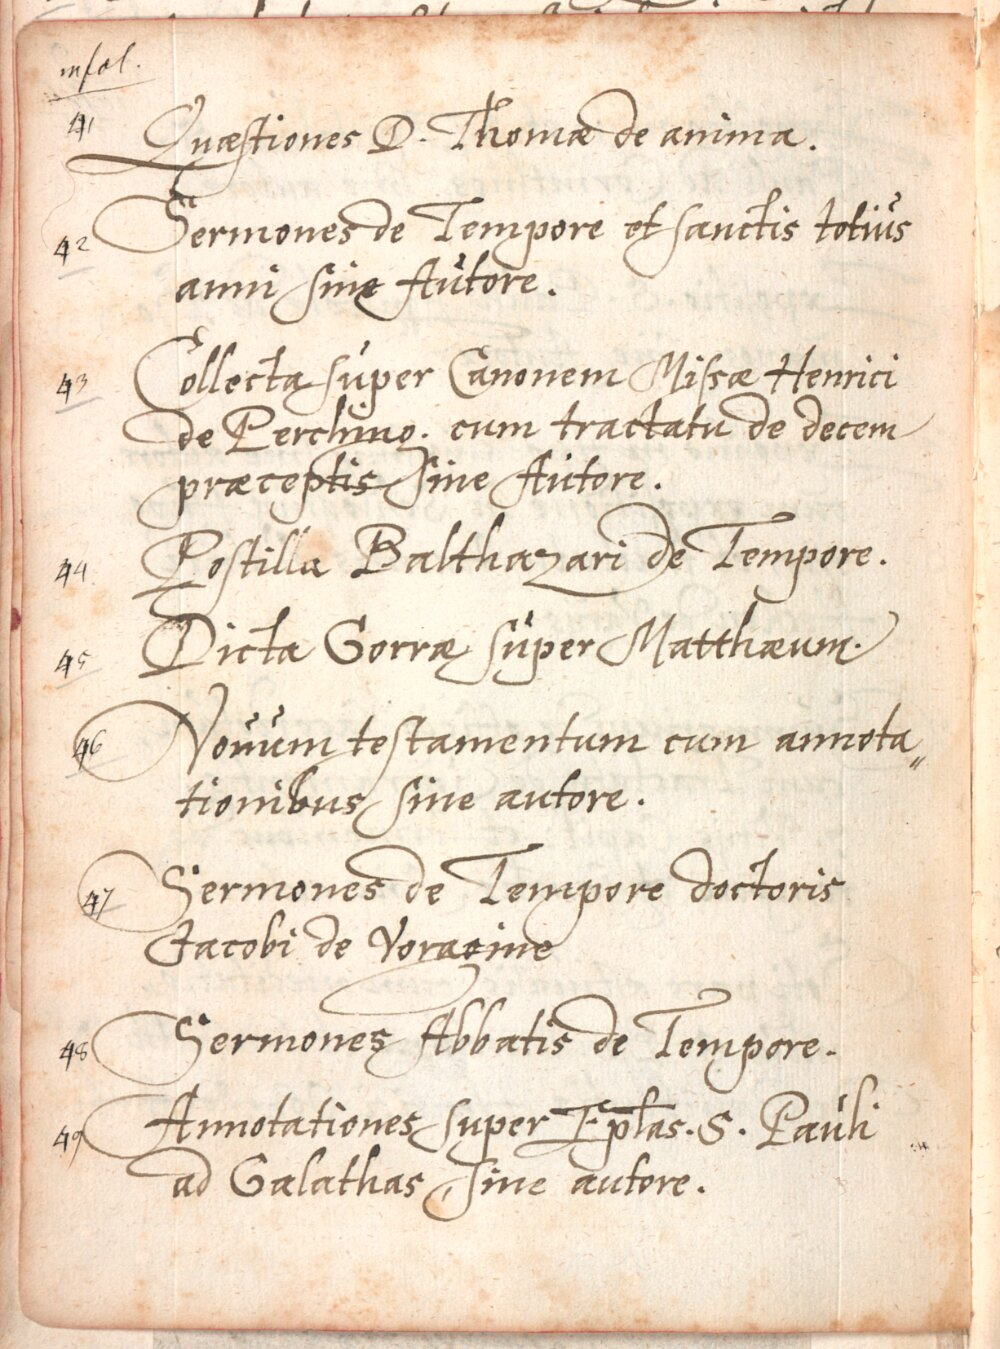 infol.
41 Quæstiones D. Thomæ de anima.
42 Sermones de Tempore et sanctis totius
anni sine Autore.
43 Collecta super Canonem Missæ Henrici
de Perching. cum tractatu de decem
præceptis sine Autore.
44 Postilla Balthazari de Tempore.
45 Dicta Gorræ super Matthæum.
46 Novum testamentum cum annota„
tionibus sine autore.
47 Sermones de Tempore doctoris
Jacobi de Voragine
48 Sermones Abbatis de Tempore.
49 Annotationes super Eplas. S. Pauli
ad Galathas, sine autore.